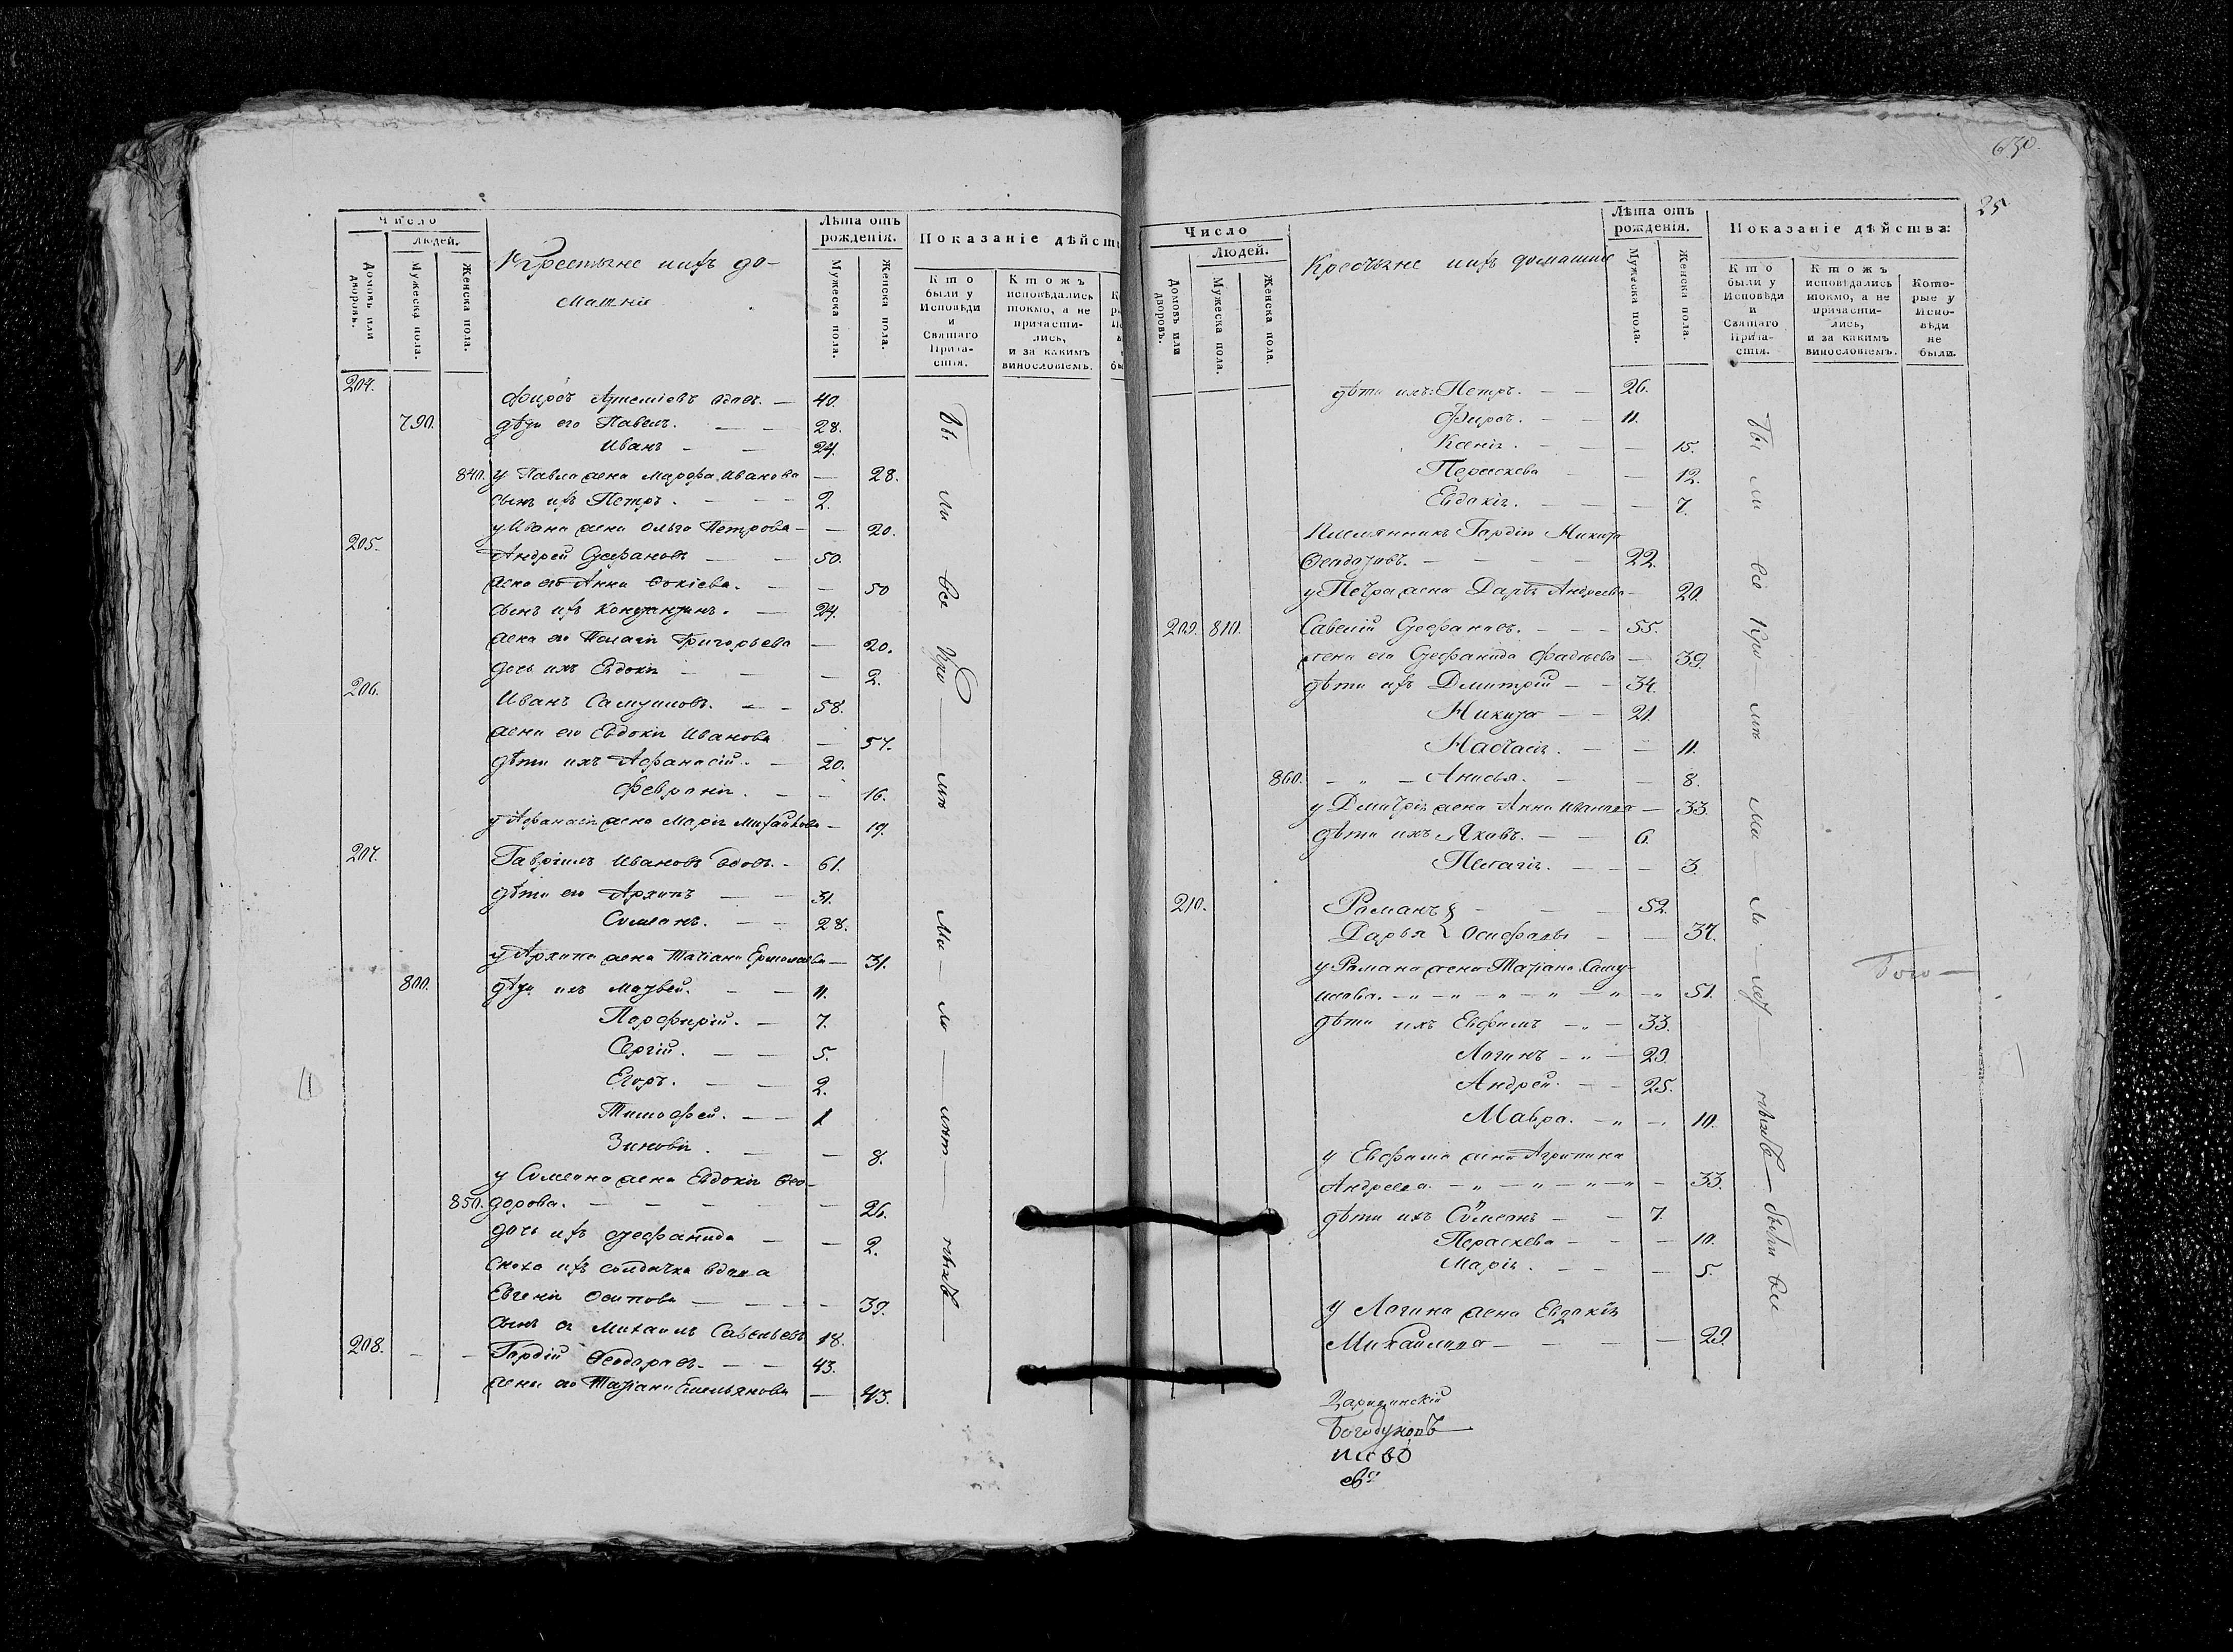 Число
Людей.
Домовъ или дворовъ.
Мужеска пола.
Женска пола.
Крестьяне ихъ до-
машніе
Лѣта отъ рожденія.
Мужеска пола.
Женска пола.
Показаніе дѣйств
Кто были у Исповѣди и Святаго Прича-стія.
Ктожъ исповѣдались токмо, а не причасти-лись, и за какимъ винословіемъ.
204.
Фирсъ Артеміевъ вдов. — 40.
790. дѣти его Павелъ. — — 28.
Иванъ — — 24.
840. у Павла жена Марфа Иванова — 28.
сынъ ихъ Петръ. — — — 2.
у Ивана жена Ольга Петрова — — 20.
205.
Андрей Стефановъ — — 50.
жена его Анна — — 50
сынъ ихъ Константинъ. — 24.
жена его Пелагія Григорьева — 20.
дочь ихъ Евдокія — — — 2.
206.
Иванъ Самуиловъ. — — 58.
жена его Евдокія Иванова — 57.
дѣти ихъ Афанасій. — 20.
Февронія. — — 16.
у Афанасія жена Марія Михайлова — 19.
207.
Гавріилъ Ивановъ вдовъ. — 61.
дѣти его Архипъ — — 31.
Симеонъ. — — 28.
у Архипа жена Татіана Ермолаева — 31.
800. дѣти ихъ Матвей. — — 11.
Порфирій. — 7.
Сергій. — — 5.
Егоръ. — — 2.
Тимофей. — — 1
Зиновія. — — 8.
у Симеона жена Евдокія Ѳео-
850. дорова. — — — — — 26.
дочь ихъ Стефанида — — 2.
сноха ихъ солдатка вдова
Евгенія Осипова — — — — 39.
сынъ ея Михаилъ Савельевъ 18.
208. — — Гордій Ѳеодоровъ. — — 43.
жена его Татіана Емельянова — 43.
Бы — ли — все — при — мѣ — — — —
630.
25
Число
Людей.
Домовъ или дворовъ.
Мужеска пола.
Женска пола.
Крестьяне ихъ домашніе
Лѣта отъ рожденія.
Мужеска пола.
Женска пола.
Показаніе дѣйства:
Кто были у Исповѣди и Святаго Прича-стія.
Ктожъ исповѣдались токмо, а не причасти-лись, и за какимъ винословіемъ.
Кото-рые у Испо-вѣди не были.
дѣти ихъ: Петръ. — — 26.
Фирсъ. — — 11.
Ксенія. — — — 15.
Параскева — — 12.
Евдокія. — — — 7.
Племянникъ Гордія Никита
Ѳеодоровъ. — — — — 22.
у Петра жена Дарья Андреева — 20.
209. 810. Савелій Стефановъ. — — — 55.
жена его Стефанида Фадѣева — 39.
дѣти ихъ Димитрій — — 34.
Никита — — 21.
Настасія. — — 11.
860. — „ — Анисья. — — 8.
у Дмитрія жена Анна Иванова — 33.
дѣти ихъ Яковъ. — — 6.
Пелагія. — — — 3.
210. Романъ — — — 52.
Дарья } Осиповы — — 37.
у Романа жена Татіана Саму-
илова. — „ — „ — „ — „ — „ — „ 51.
дѣти ихъ Евфимъ — „ — 33.
Логинъ — „ — 29.
Андрей. — — 25.
Мавра. — „ — 10.
у Евфима жена Агрипина
Андреева. — „ — „ — „ — „ — 33.
дѣти ихъ Симеонъ — — 7.
Параскева — — — 10.
Марія. — — — 5.
у Логина жена Евдокія
Михайлова — — — — 29.
были вси
Бого —